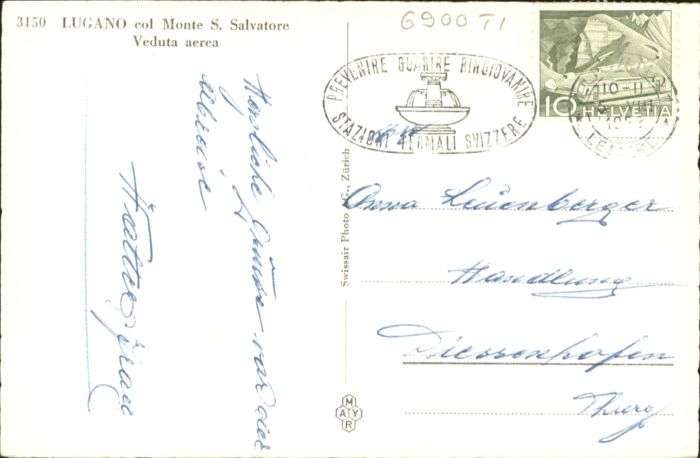 3150 LUGANO col Monte S. Salvatore
Veduta aerea
6900 TI
PREVENIRE GUARIRE RINGIOVANIRE
STAZIONI TERMALI SVIZZERE
10 HELVETIA
10-11
VIII
Herzliche Grüsse von der
Abreise
Swissair Photo A.G., Zürich
MAYR
Anna Leuenberger
Handlung
Diessenhofen
Thurg